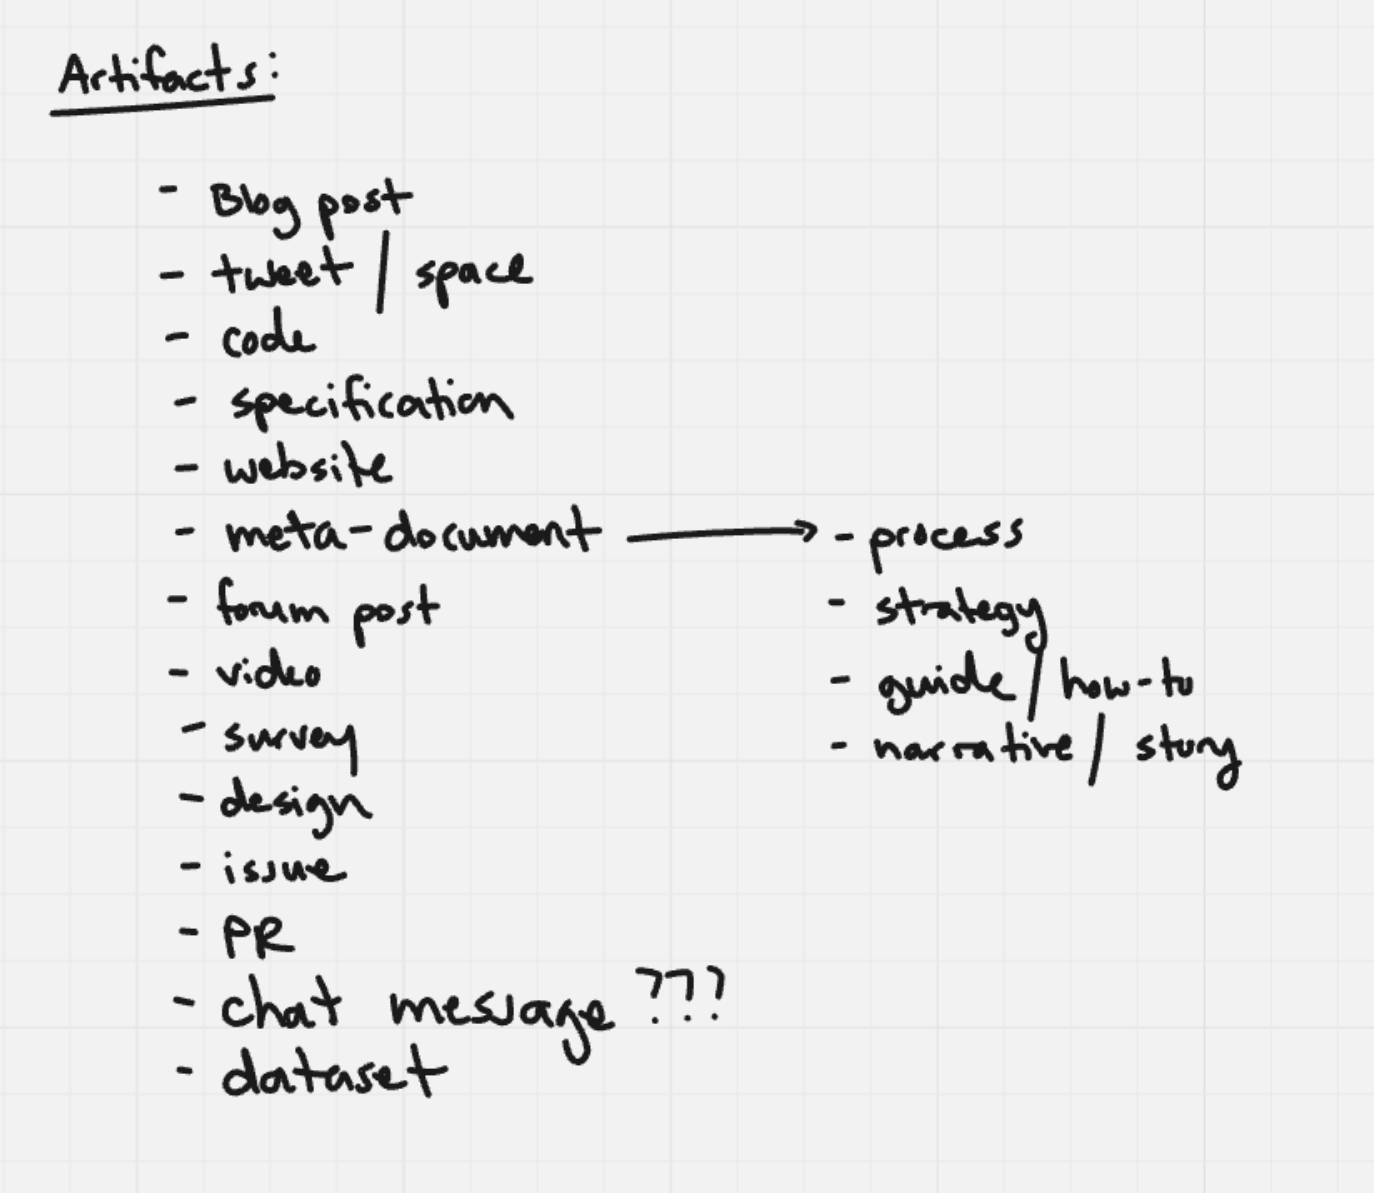 Artifacts:
- Blog post
- tweet / space
- code
- specification
- website
- meta-document
- forum post
- video
- survey
- design
- issue
- PR
- chat message ???
- dataset
- process
- strategy
- guide / how-to
- narrative / story